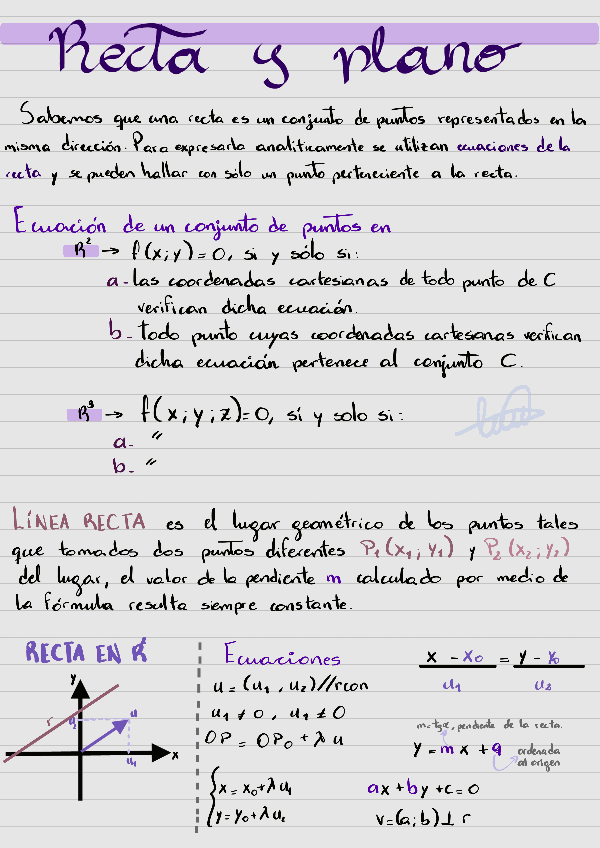 Recta y plano
Sabemos que una recta es un conjunto de puntos representados en la
misma dirección. Para expresarla analíticamente se utilizan ecuaciones de la
recta y se pueden hallar con sólo un punto perteneciente a la recta.
Ecuación de un conjunto de puntos en
R² → f(x;y)=0, si y sólo si:
a- las coordenadas cartesianas de todo punto de C
verifican dicha ecuación.
b- todo punto cuyas coordenadas cartesanas verifican
dicha ecuación pertenece al conjunto C.
R³ → f(x;y;z)=0, si y solo si:
a- "
b- "
LÍNEA RECTA es el lugar geométrico de los puntos tales
que tomados dos puntos diferentes P₁(x₁;y₁) y P₂(x₂;y₂)
del lugar, el valor de la pendiente m calculado por medio de
la fórmula resulta siempre constante.
RECTA EN R²
y
r
u₂
u
u₁
x
Ecuaciones
u = (u₁, u₂)//r con
u₁ ≠ 0, u₁ ≠ 0
OP = OP₀ + λ u
x = x₀ + λ u₁
y = y₀ + λ u₂
x - x₀ = y - y₀
u₁ u₂
m=tgα, pendiente de la recta.
y = m x + q
ordenada
al origen
ax + by + c = 0
v=(a;b)⊥ r